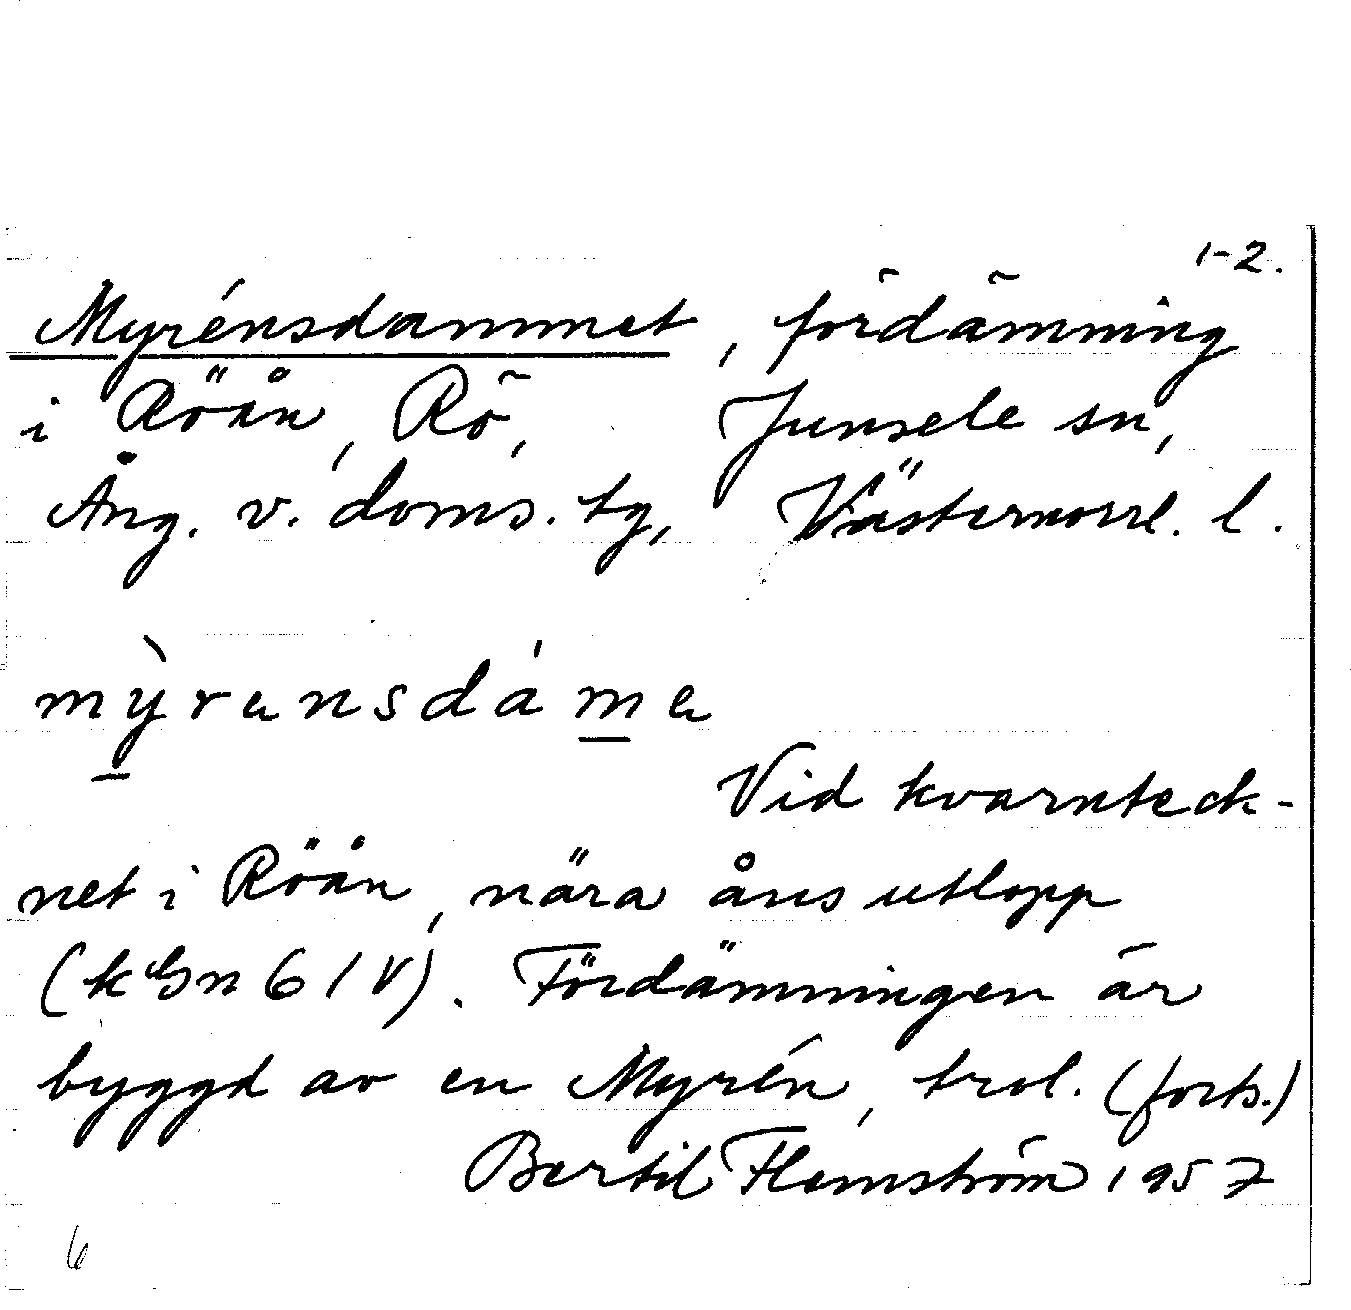 1-2.
Myrénsdammet, fördämning
i Röån, Rö, Junsele sn,
Ång. v. doms. tg, Västernorrl. l.
mỳrensdáme
Vid kvarnteck-
net i Röån, nära åns utlopp
(kGn 61V). Fördämningen är
byggd av en Myrén, trol. (forts.)
Bertil Flemström 1957
6